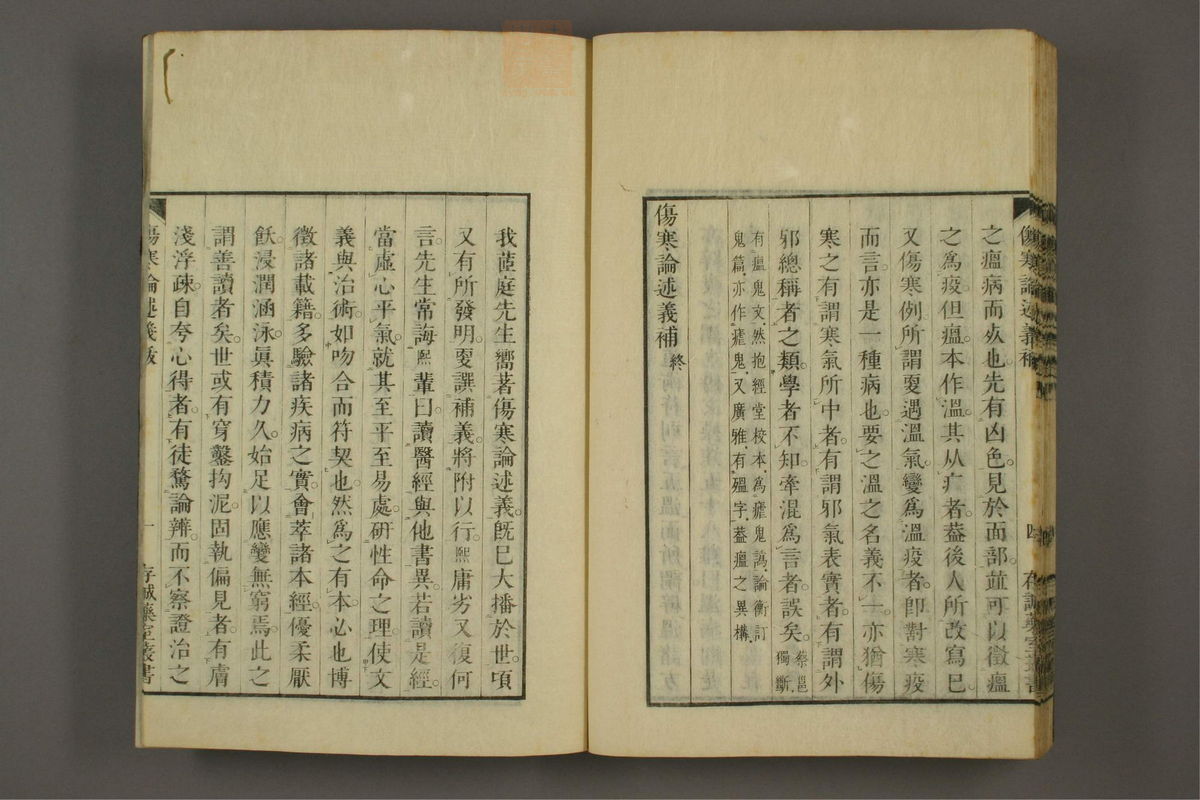 傷寒論述義補
四
存誠藥室叢書
之瘟病而※也先有凶色見於面部並可以徵瘟
之爲疫但瘟本作溫其从疒者葢後人所改寫已
又傷寒例所謂更遇溫氣變爲溫疫者卽對寒疫
而言亦是一種病也要之溫之名義不一亦猶傷
寒之有謂寒氣所中者有謂邪氣表實者有謂外
邪總稱者之類學者不知牽混爲言者誤矣蔡邕獨斷
有瘟鬼文然抱經堂校本爲瘧鬼譌論衡訂
鬼篇亦作瘧鬼又廣雅有殟字葢瘟之異構
傷寒論述義補終
我茝庭先生嚮著傷寒論述義旣已大播於世頃
又有所發明更譔補義將附以行熙庸劣又復何
言先生常誨熙輩曰讀醫經與他書異若讀是經
當虛心平氣就其至平至易處硏性命之理使文
義與治術如吻合而符契也然爲之有本必也博
徵諸載籍多驗諸疾病之實會萃諸本經優柔厭
飫浸潤涵泳眞積力久始足以應變無窮焉此之
謂善讀者矣世或有穿鑿拘泥固執偏見者有膚
淺浮疎自夸心得者有徒騖論辨而不察證治之
傷寒論述義跋
一
存誠藥室叢書